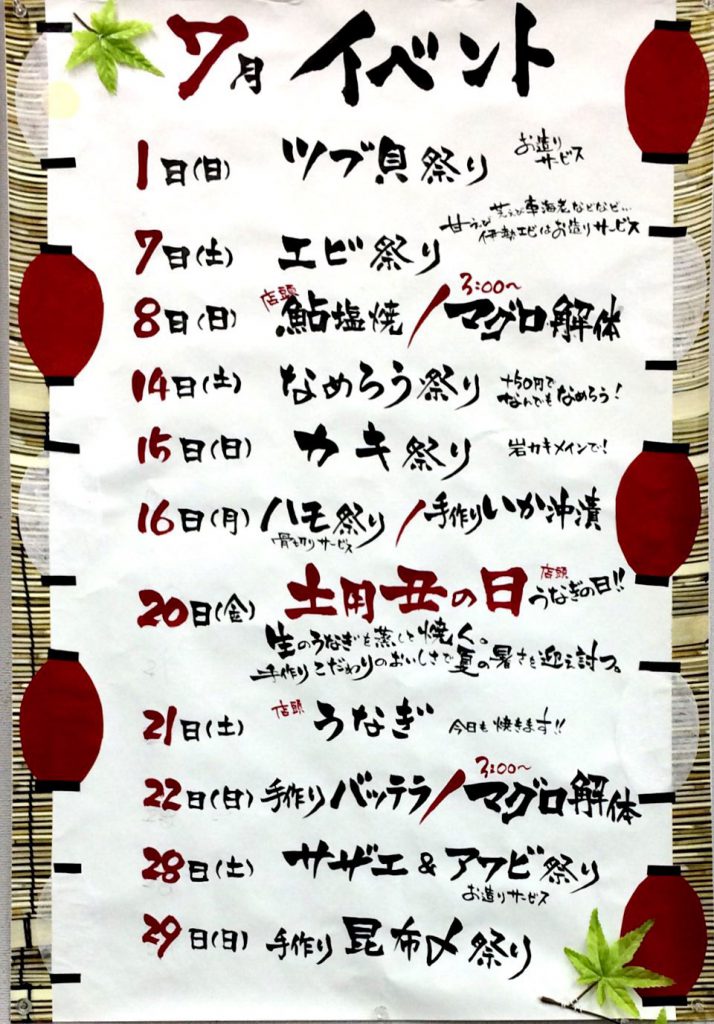 7月 イベント
1日(日) ツブ貝祭り お造り
サービス
7日(土) エビ祭り
甘えび 芝えび 車海老などなど…
伊勢エビはお造りサービス
8日(日) 店頭 鮎塩焼 / 3:00〜 マグロ解体
14日(土) なめろう祭り +50円で
なんでもなめろう!
15日(日) カキ祭り 岩カキメインで!
16日(月) ハモ祭り / 手作りいか沖漬
骨切りサービス
20日(金) 土用丑の日 店頭 うなぎの日!!
生のうなぎを蒸して焼く。
手作りこだわりのおいしさで夏の暑さを迎え討つ。
21日(土) 店頭 うなぎ 今日も焼きます!!
22日(日) 手作りバッテラ / 3:00〜 マグロ解体
28日(土) サザエ&アワビ祭り
お造りサービス
29日(日) 手作り 昆布〆祭り